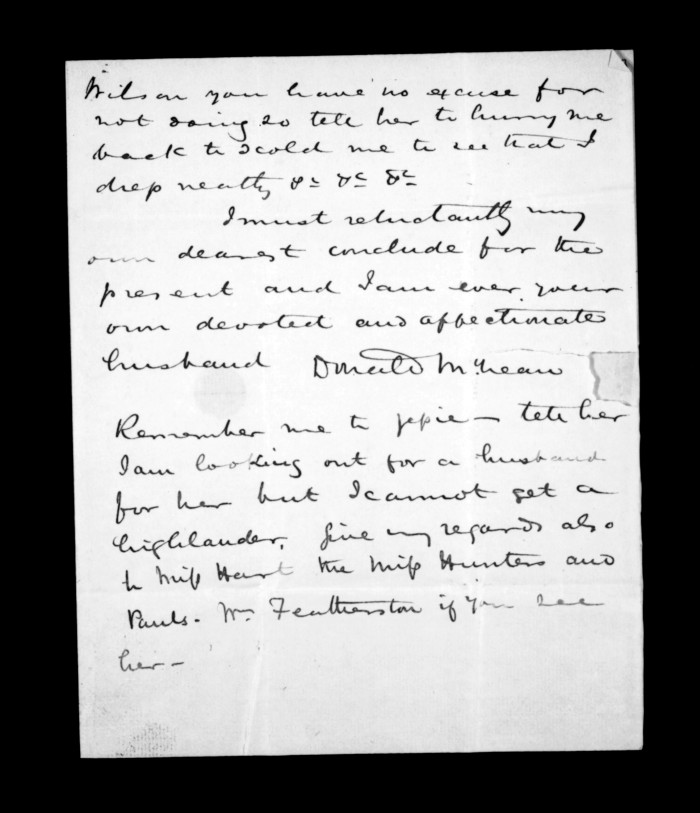 Wilson you have no excuse for
not doing so tell her to hurry me
back to scold me to see that I
drep neatly &c &c &c
I must reluctantly my
own dearest conclude for the
present and I am ever your
own devoted and affectionate
husband Donald McLean
Remember me to Jepie — tell her
I am looking out for a husband
for her but I cannot get a
highlander. Give my regards also
to Miss Hart the Miss Hunters and
Pauls. Mrs Featherston if you see
her —